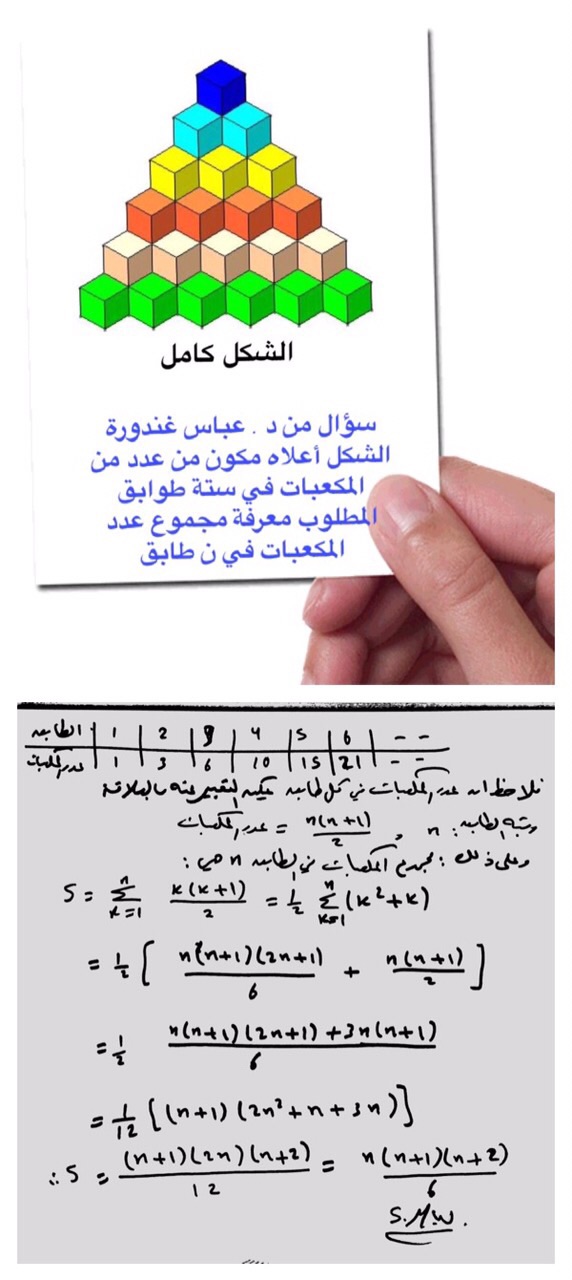 الشكل كامل
سؤال من د . عباس غندورة
الشكل أعلاه مكون من عدد من
المكعبات في ستة طوابق
المطلوب معرفة مجموع عدد
المكعبات في ن طابق
الطابق 1 2 3 4 5 6 - -
عدد المكعبات 1 3 6 10 15 21 - -
نلاحظ أن عدد المكعبات في كل طابق يمكن التعبير عنه بالعلاقة
عدد المكعبات = n(n+1)/2 , n : رتبة الطابق
وعلى ذلك : مجموع المكعبات في الطابق n هي :
S = n Σ k=1 k(k+1)/2 = 1/2 n Σ k=1 (k²+k)
= 1/2 [ n(n+1)(2n+1)/6 + n(n+1)/2 ]
= 1/2 n(n+1)(2n+1)+3n(n+1)/6
= 1/12 [(n+1)(2n²+n+3n)]
∴ S = (n+1)(2n)(n+2)/12 = n(n+1)(n+2)/6
S.M.W.